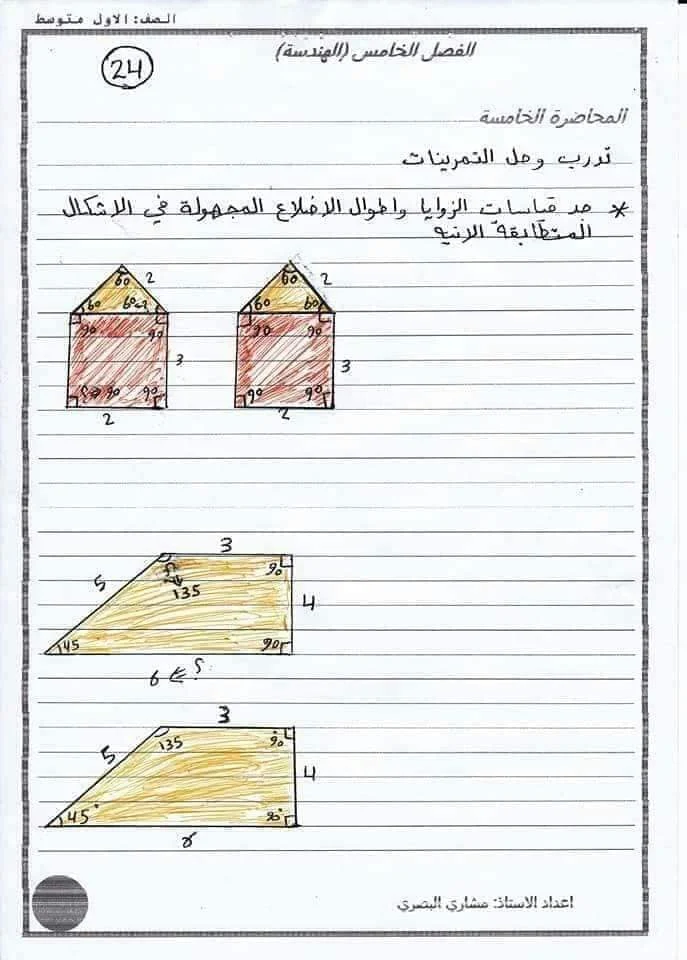 الصف: الاول متوسط
الفصل الخامس (الهندسة)
24
المحاضرة الخامسة
تدرب وحل التمرينات
* جد قياسات الزوايا واطوال الاضلاع المجهولة في الاشكال
المتطابقة الاتية
60 2 60 2
60 60 ؟ 60 60
90 90 90 90
3 3
؟ 90 90 90 90
2 2
3
90
؟
5 135 4
45 90
6 ؟
3
135 90
5 4
45° 90°
اعداد الاستاذ: مشاري البصري